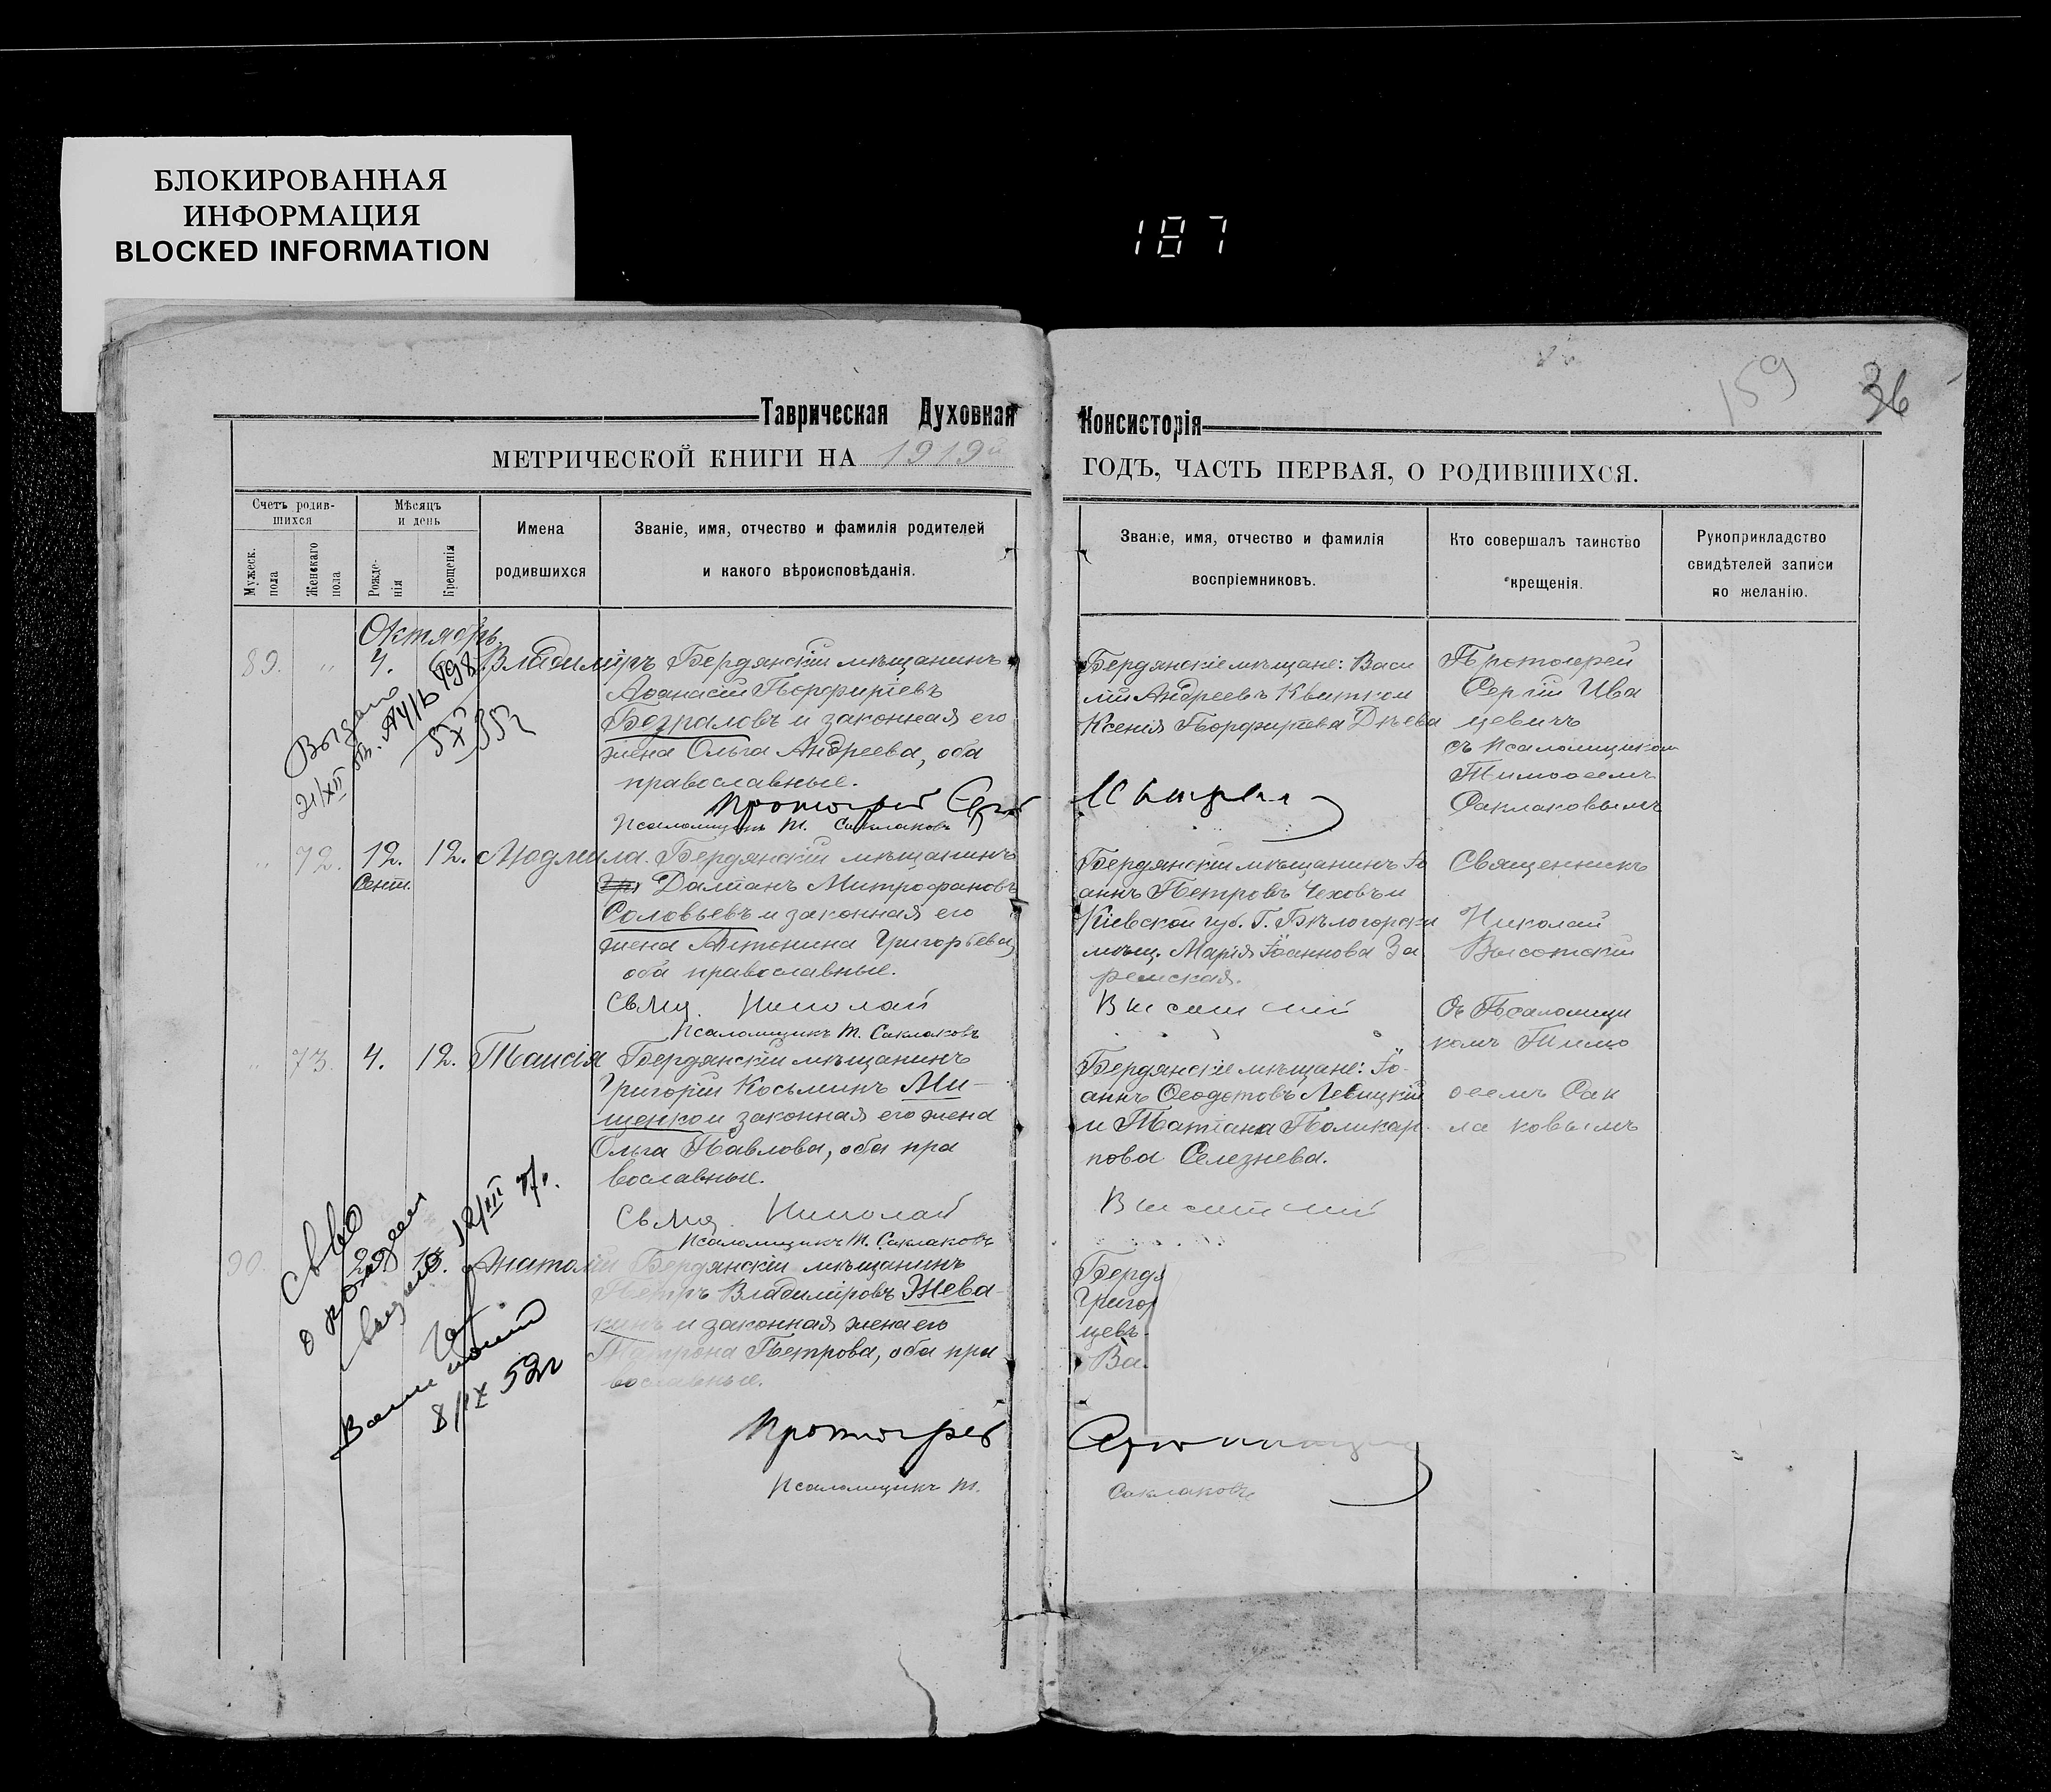 БЛОКИРОВАННАЯ
ИНФОРМАЦИЯ
BLOCKED INFORMATION
187
159
36
Таврическая Духовная Консисторія
МЕТРИЧЕСКОЙ КНИГИ НА 1919й ГОДЪ, ЧАСТЬ ПЕРВАЯ, О РОДИВШИХСЯ.
Счетъ родив-
шихся
Мужеск.
пола
Женскаго
пола
Мѣсяцъ
и день
Рожде-
нія
Крещенія
Имена
родившихся
Званіе, имя, отчество и фамилія родителей
и какого вѣроисповѣданія.
Званіе, имя, отчество и фамилія
воспріемниковъ.
Кто совершалъ таинство
крещенія.
Рукоприкладство
свидѣтелей записи
по желанію.
Октябрь
89. " 4. Владиміръ
Бердянскій мѣщанинъ
Аѳанасій Порфиріевъ
и законная его
жена Ольга Андреева, оба
православные.
Протоіерей
Псаломщикъ Т. Саклаковъ
Бердянскіе мѣщане: Васи
лій Андреевъ и
Ксенія Порфиріева
Протоіерей
Сергій Ива
цевичъ
съ псаломщикомъ
Тимоѳеемъ
Саклаковымъ
Выдано
21/XII
" 72. 12. 12.
Сент.
Бердянскій мѣщанинъ
Даміанъ Митрофановъ
Соловьевъ и законная его
жена Антонина Григорьева,
оба православные.
Свящ. Николай
Высотскій
Псаломщикъ Т. Саклаковъ
Бердянскій мѣщанинъ Іо
аннъ Петровъ Чеховъ и
Кіевской губ. Г.
мѣщ. Марія Іоаннова За
ремская.
Священникъ
Николай
Высотскій
съ Псаломщи
комъ Тимо
ѳеемъ Сак
лаковымъ
" 73. 4. 12. Таисія
Бердянскій мѣщанинъ
Григорій Косьминъ Ми-
щенко и законная его жена
Ольга Павлова, оба пра
вославные.
Свящ. Николай
Высотскій
Псаломщикъ Т. Саклаковъ
Бердянскіе мѣщане: Іо-
аннъ Ѳеодотовъ Левицкій
и Татіана Поликар-
пова Селезнева.
90. Анатолій
Бердянскій мѣщанинъ
Петръ Владиміровъ Жева-
кинъ и законная жена его
Петрова, оба пра
вославные.
Протоіерей
Псаломщикъ Т.
Саклаковъ
Бердя
Григор
цевъ
Ва.
о рождении
12/III
8/IX 52г